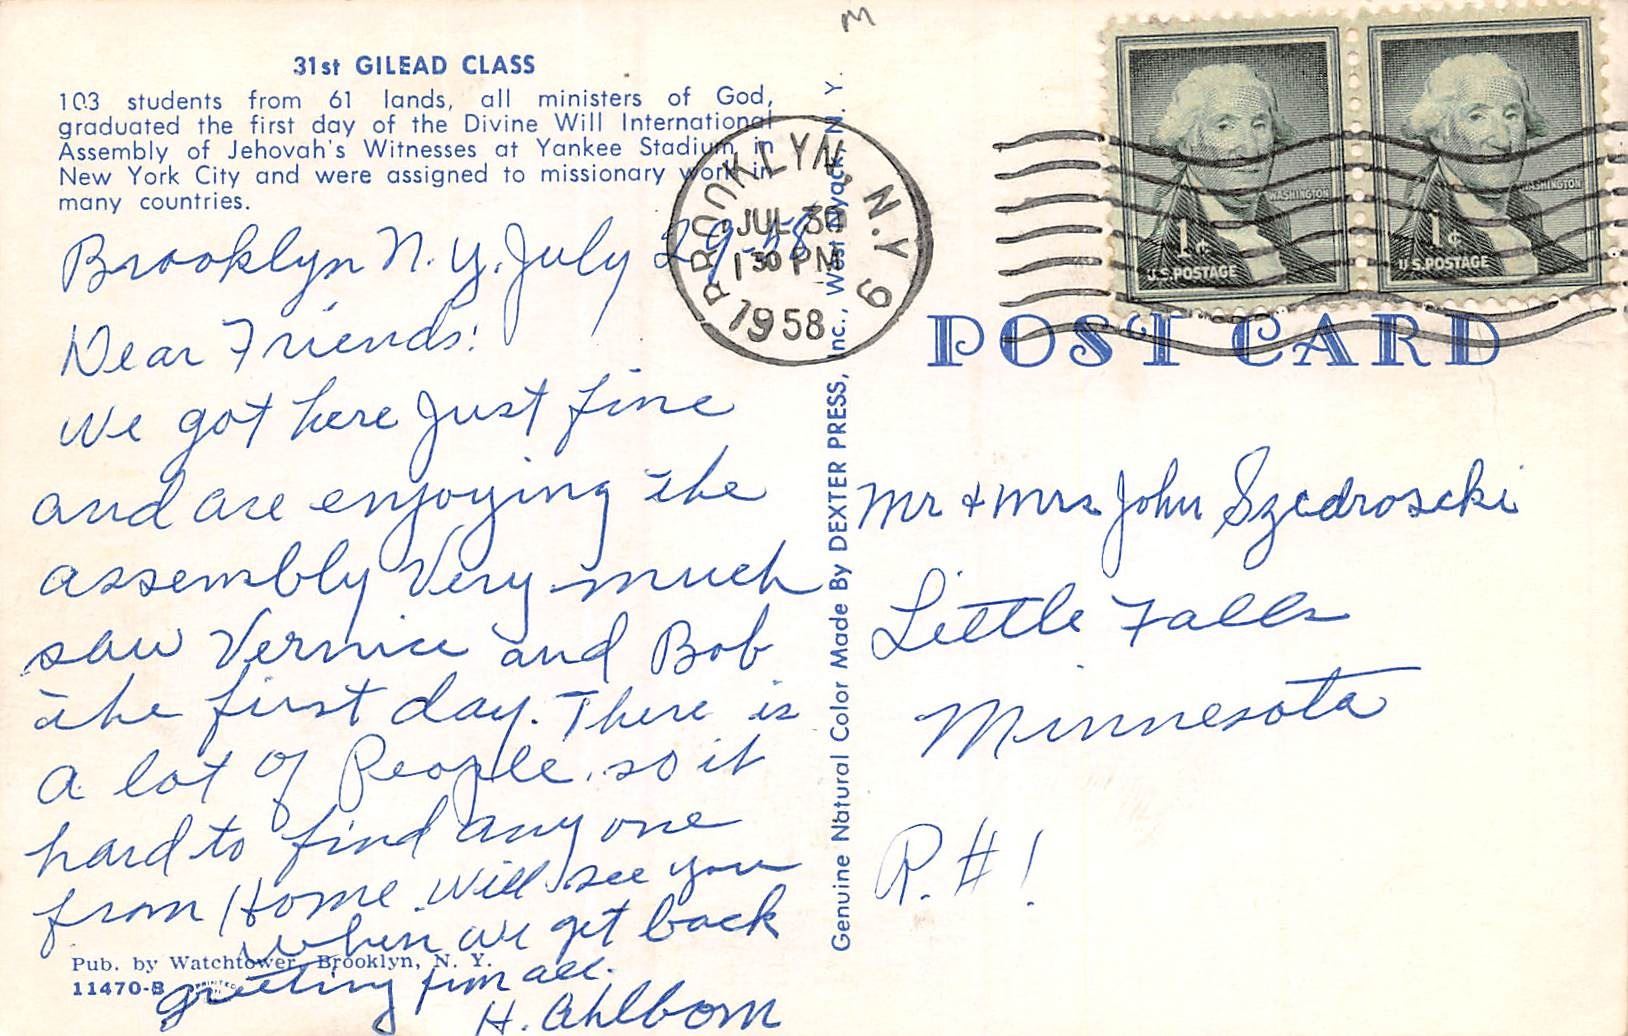 31st GILEAD CLASS
103 students from 61 lands, all ministers of God,
graduated the first day of the Divine Will International
Assembly of Jehovah's Witnesses at Yankee Stadium, in
New York City and were assigned to missionary work in
many countries.
Brooklyn N. Y. July 29-58
Dear Friends:
We got here Just fine
and are enjoying the
assembly Very much
saw Vernice and Bob
the first day. There is
a lot of People. so it
hard to find any one
from Home. Will see you
when we get back
greeting from all.
H. Ahlbom
Pub. by Watchtower, Brooklyn, N. Y.
11470-B
Genuine Natural Color Made By DEXTER PRESS, Inc., West Nyack, N. Y.
M
BROOKLYN, N.Y. 9
JUL 30
1 30 PM
1958
WASHINGTON
1¢
U.S. POSTAGE
WASHINGTON
1¢
U.S. POSTAGE
POST CARD
Mr + Mrs John Szedroscki
Little Falls
Minnesota
R. # 1